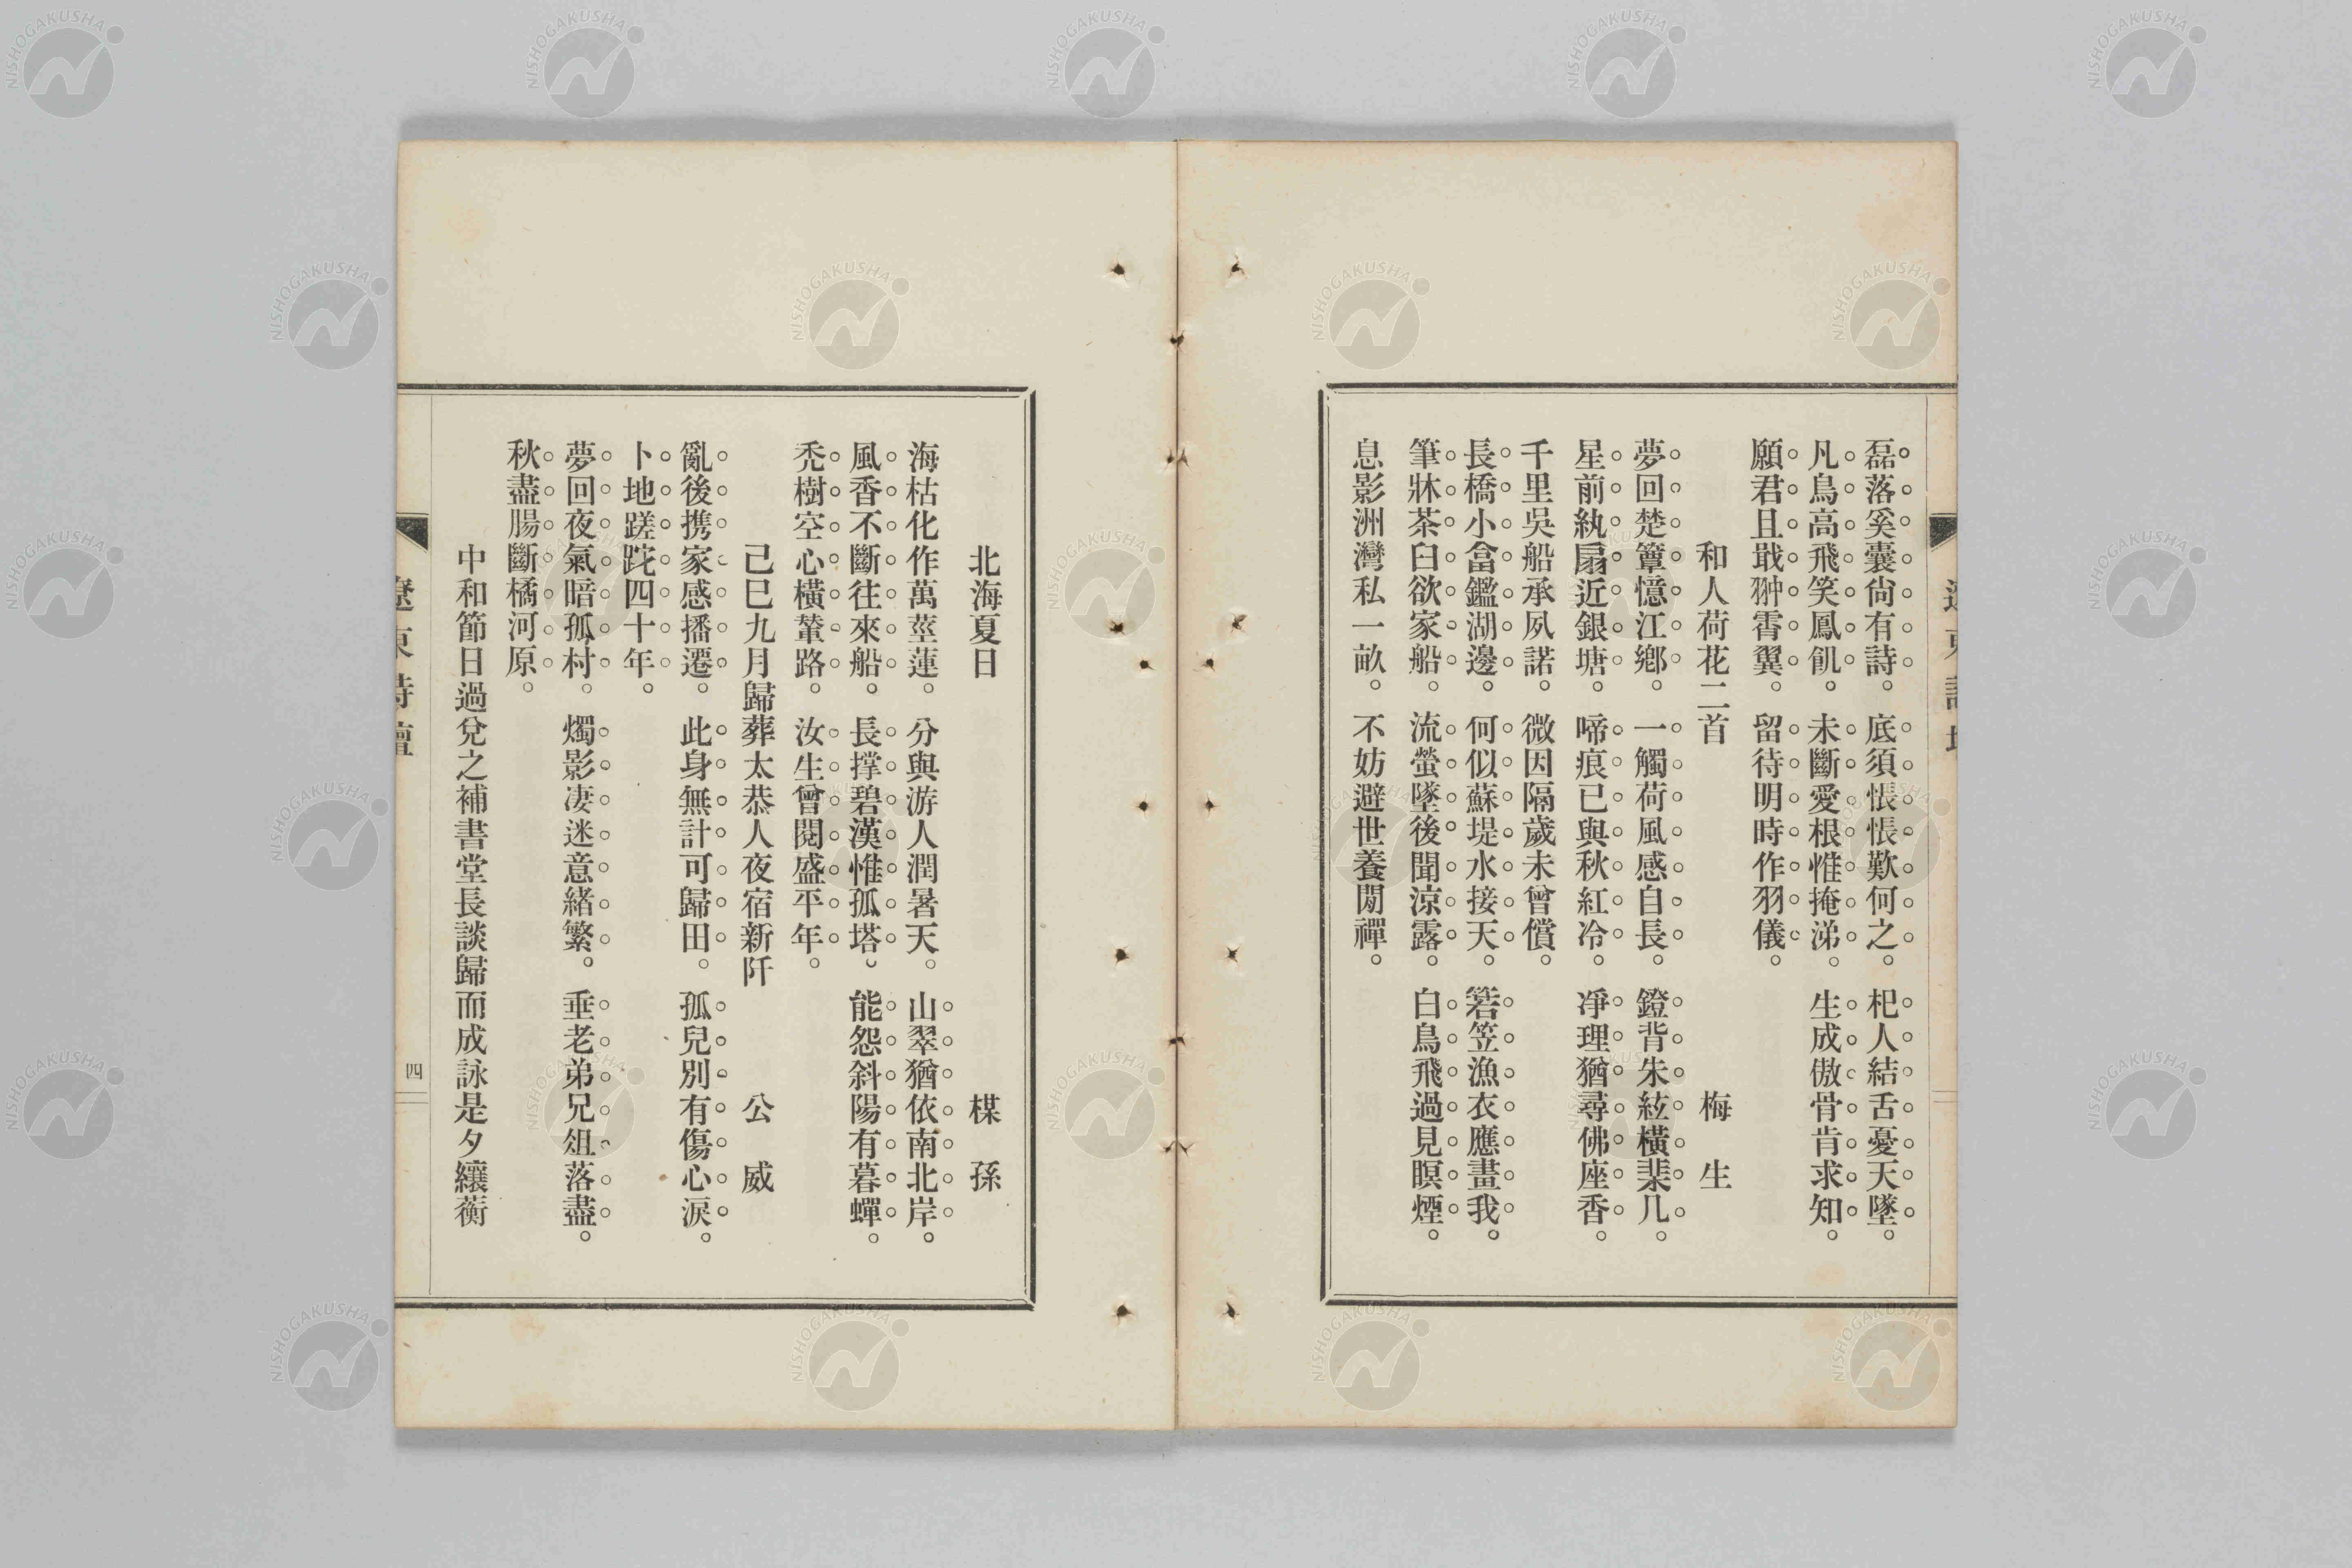 磊落奚囊尙有詩。底須悵悵歎何之。杞人結舌憂天墜。
凡鳥高飛笑鳳飢。未斷愛根惟掩涕。生成傲骨肯求知。
願君且戢翀霄翼。留待明時作羽儀。
和人荷花二首　梅生
夢回楚簟憶江鄉。一觸荷風感自長。鐙背朱絃橫棐几。
星前紈扇近銀塘。啼痕已與秋紅冷。淨理猶尋佛座香。
千里吳船承夙諾。微因隔歲未曾償。
長橋小畣鑑湖邊。何似蘇堤水接天。箬笠漁衣應畫我。
筆牀茶臼欲家船。流螢墜後聞涼露。白鳥飛過見暝煙。
息影洲灣私一畝。不妨避世養閒禪。
北海夏日　楳孫
海枯化作萬莖蓮。分與游人潤暑天。山翠猶依南北岸。
風香不斷往來船。長撑碧漢惟孤塔。能怨斜陽有暮蟬。
禿樹空心橫輦路。汝生曾閱盛平年。
己巳九月歸葬太恭人夜宿新阡　公威
亂後携家感播遷。此身無計可歸田。孤兒別有傷心淚。
卜地蹉跎四十年。
夢回夜氣暗孤村。燭影凄迷意緖繁。垂老弟兄俎落盡。
秋盡腸斷橘河原。
中和節日過兌之補書堂長談歸而成詠是夕纕蘅
遼東詩壇
四
NISHOGAKUSHA